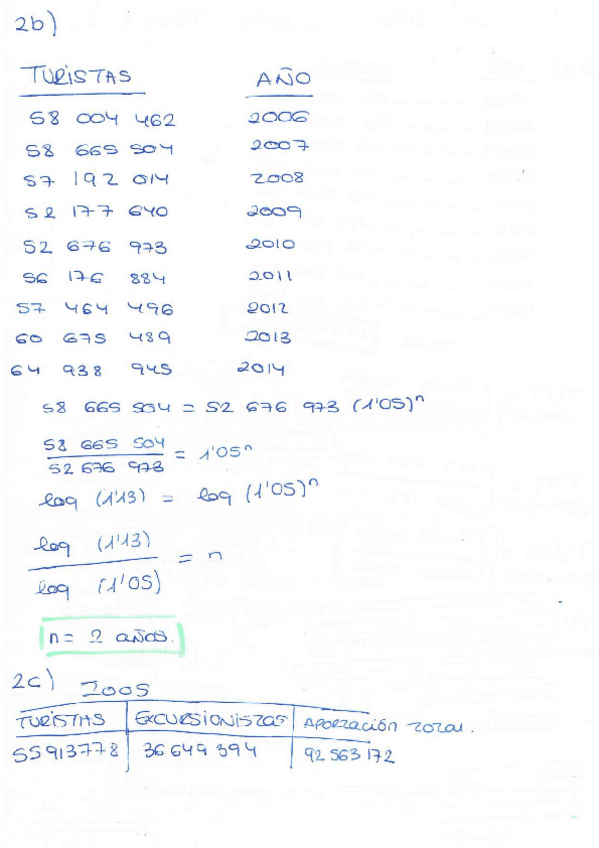 2b)
TURISTAS AÑO
58 004 462 2006
58 665 504 2007
57 192 014 2008
52 177 640 2009
52 676 973 2010
56 176 884 2011
57 464 496 2012
60 675 489 2013
64 938 945 2014
58 665 504 = 52 676 973 (1'05)ⁿ
58 665 504
52 676 973 = 1'05ⁿ
log (1'13) = log (1'05)ⁿ
log (1'13)
log (1'05) = n
n = 2 años.
2c) 2005
TURISTAS EXCURSIONISTAS APORTACIÓN TOTAL.
55913778 36 649 394 92 563 172